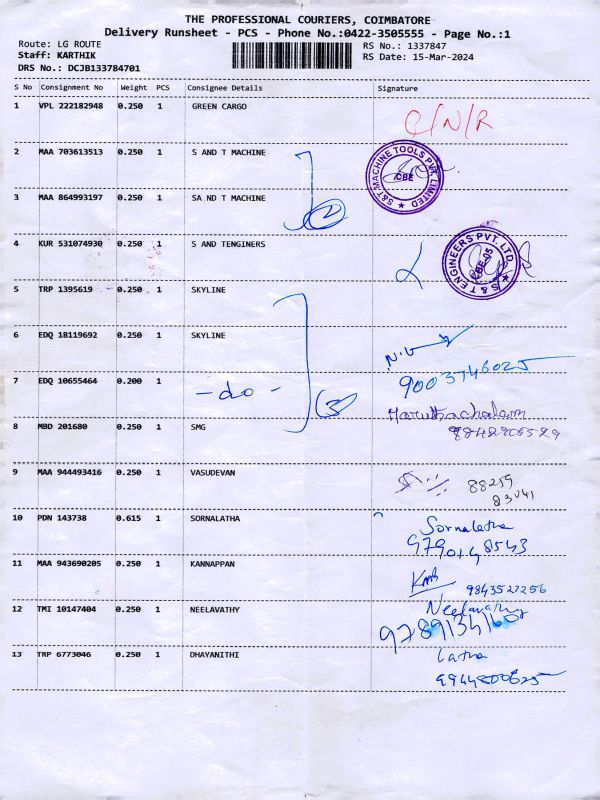 THE PROFESSIONAL COURIERS, COIMBATORE
Delivery Runsheet - PCS - Phone No.:0422-3505555 - Page No.:1
Route: LG ROUTE RS No.: 1337847
Staff: KARTHIK RS Date: 15-Mar-2024
DRS No.: DCJB133784701
S No Consignment No Weight PCS Consignee Details Signature
1 VPL 222182948 0.250 1 GREEN CARGO
C/N/R
2 MAA 703613513 0.250 1 S AND T MACHINE
S&T MACHINE TOOLS PVT. LIMITED
CBE
3 MAA 864993197 0.250 1 SA ND T MACHINE
2
4 KUR 531074930 0.250 1 S AND TENGINERS
S & T ENGINEERS PVT. LTD.
CBE-05
5 TRP 1395619 0.250 1 SKYLINE
6 EDQ 18119692 0.250 1 SKYLINE
9003746025
7 EDQ 10655464 0.200 1 -do-
3
8 MBD 201680 0.250 1 SMG
Maruthachalam
9 MAA 944493416 0.250 1 VASUDEVAN
88259
83041
10 PDN 143738 0.615 1 SORNALATHA
Sornalatha
9790148543
11 MAA 943690205 0.250 1 KANNAPPAN
9843527256
12 TMI 10147404 0.250 1 NEELAVATHY
Neelavathy
9789134160
13 TRP 6773046 0.250 1 DHAYANITHI
Latha
9944800625